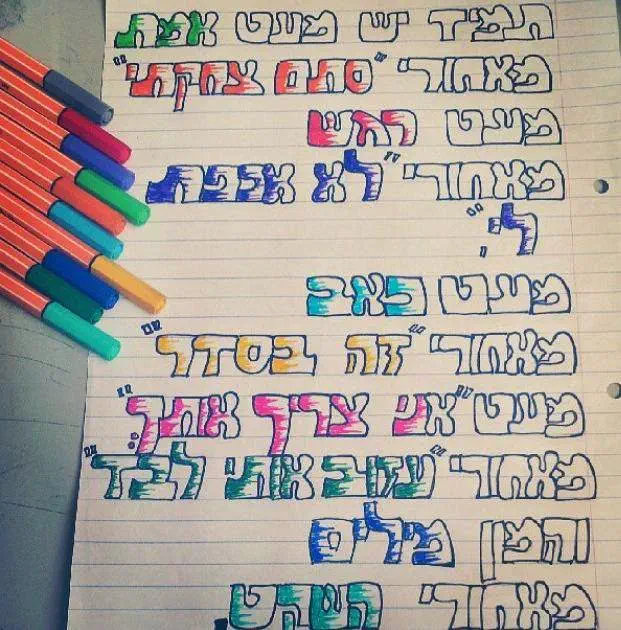 תמיד יש מעט אמת
מאחורי "סתם צחקתי"
מעט רגש
מאחורי "לא אכפת
לי".
מעט כאב
מאחורי "זה בסדר"
מעט "אני צריך אתך"
מאחורי "עזוב אותי לבד"
והמון מילים
מאחורי השקט.